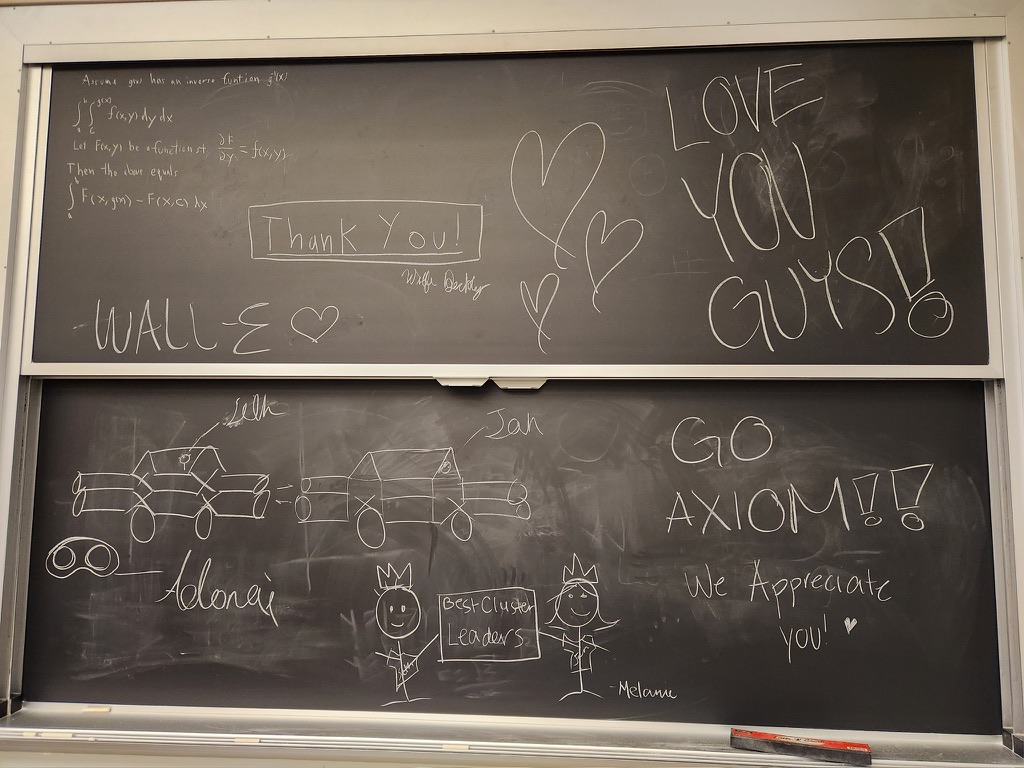 Assume g(x) has an inverse funtion g⁻¹(x)
∫ₐᵇ∫꜀^g(x) f(x,y) dy dx
Let F(x,y) be a function st. ∂F/∂y = f(x,y)
Then the above equals
∫ₐᵇ F(x,g(x)) - F(x,c) dx
Thank You!
WALL-E
LOVE
YOU
GUYS!
Jah
GO
AXIOM!!
Adonai
Best Cluster
Leaders
-Melanie
We Appreciate
YOU!